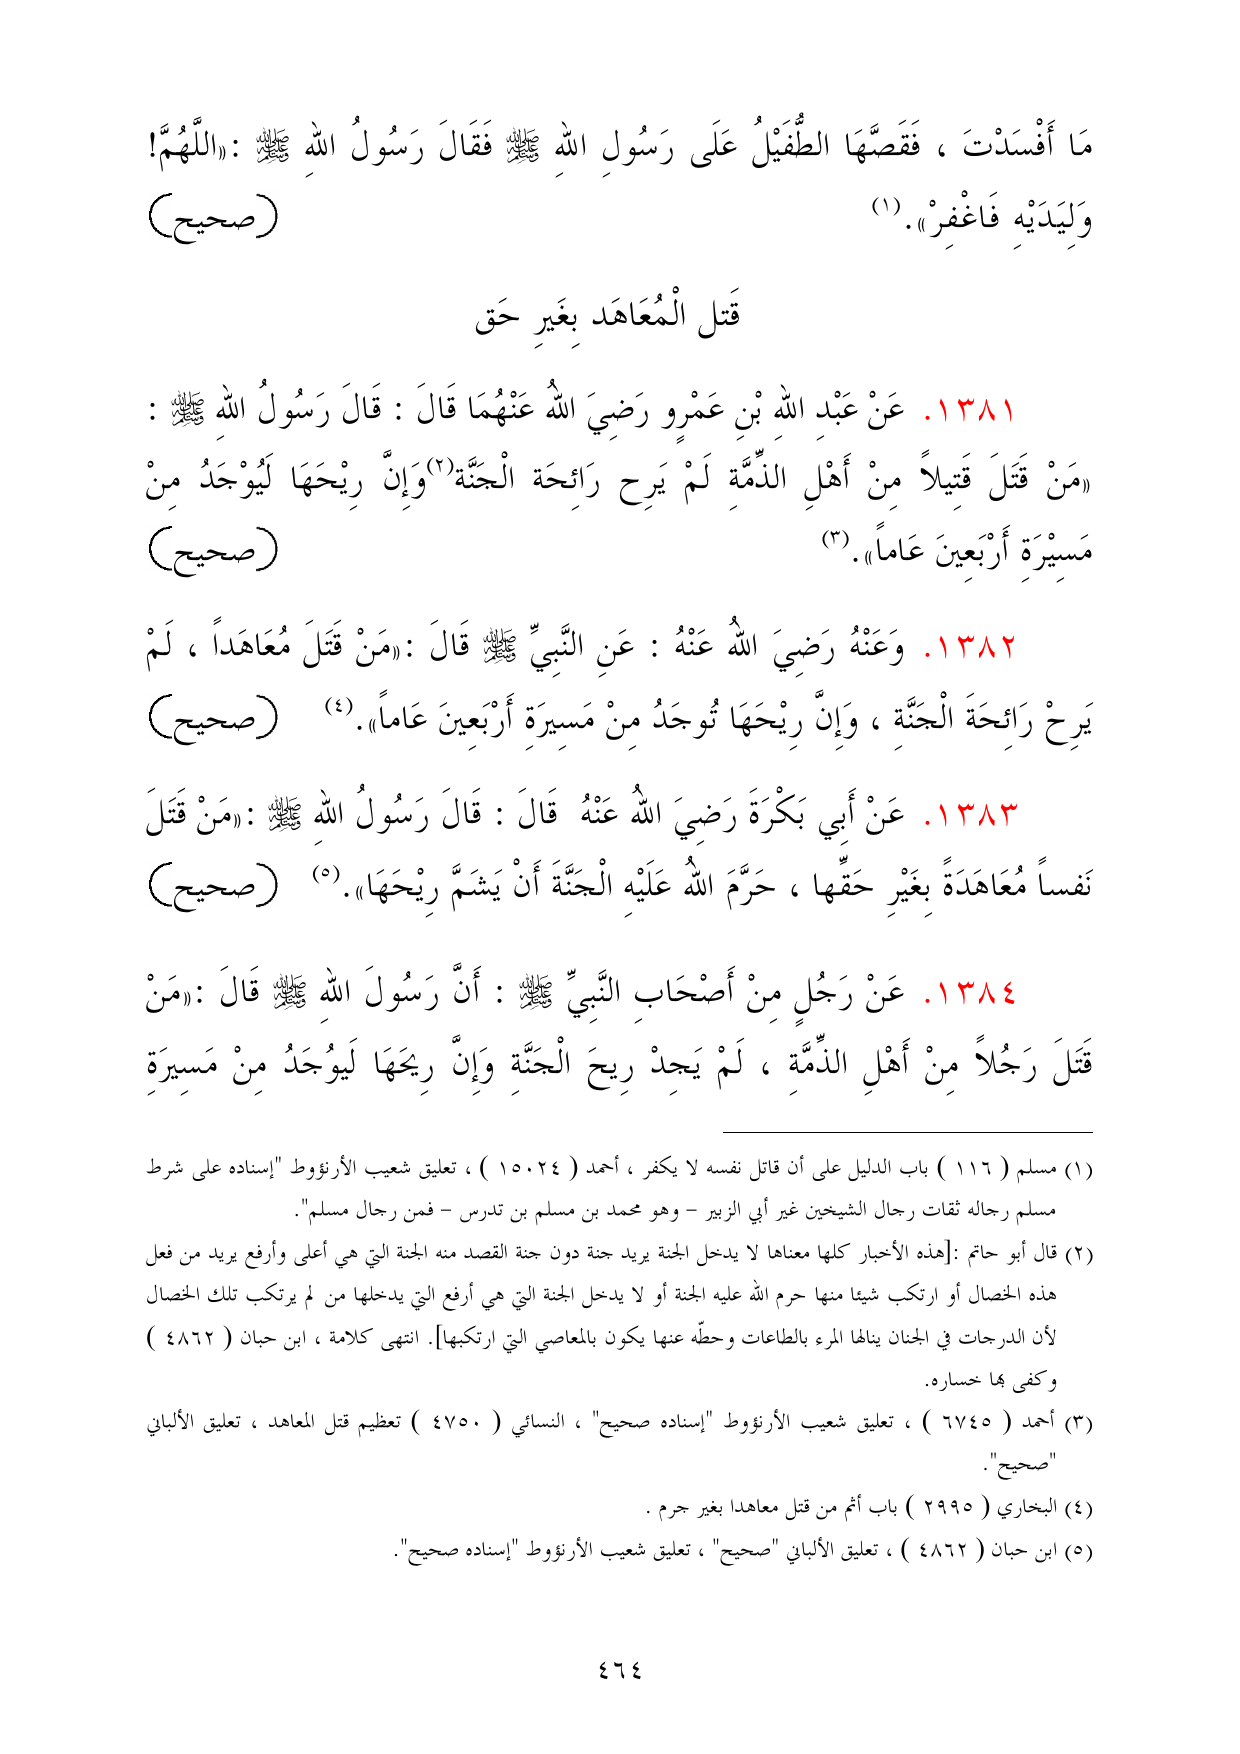 مَا أَفْسَدْتَ ، فَقَصَّهَا الطُّفَيْلُ عَلَى رَسُولِ اللهِ ﷺ فَقَالَ رَسُولُ اللهِ ﷺ :«اللَّهُمَّ!
وَلِيَدَيْهِ فَاغْفِرْ».(١) (صحيح)
قَتل الْمُعَاهَد بِغَيرِ حَق
١٣٨١. عَنْ عَبْدِ اللهِ بْنِ عَمْرٍو رَضِيَ اللهُ عَنْهُمَا قَالَ : قَالَ رَسُولُ اللهِ ﷺ :
«مَنْ قَتَلَ قَتِيلاً مِنْ أَهْلِ الذِّمَّةِ لَمْ يَرِح رَائِحَة الْجَنَّة(٢)وَإِنَّ رِيْحَهَا لَيُوْجَدُ مِنْ
مَسِيْرَةِ أَرْبَعِينَ عَاماً».(٣) (صحيح)
١٣٨٢. وَعَنْهُ رَضِيَ اللهُ عَنْهُ : عَنِ النَّبِيِّ ﷺ قَالَ :«مَنْ قَتَلَ مُعَاهَداً ، لَمْ
يَرِحْ رَائِحَةَ الْجَنَّةِ ، وَإِنَّ رِيْحَهَا تُوجَدُ مِنْ مَسِيرَةِ أَرْبَعِينَ عَاماً».(٤) (صحيح)
١٣٨٣. عَنْ أَبِي بَكْرَةَ رَضِيَ اللهُ عَنْهُ قَالَ : قَالَ رَسُولُ اللهِ ﷺ :«مَنْ قَتَلَ
نَفساً مُعَاهَدَةً بِغَيْرِ حَقِّها ، حَرَّمَ اللهُ عَلَيْهِ الْجَنَّةَ أَنْ يَشَمَّ رِيْحَهَا».(٥) (صحيح)
١٣٨٤. عَنْ رَجُلٍ مِنْ أَصْحَابِ النَّبِيِّ ﷺ : أَنَّ رَسُولَ اللهِ ﷺ قَالَ :«مَنْ
قَتَلَ رَجُلاً مِنْ أَهْلِ الذِّمَّةِ ، لَمْ يَجِدْ رِيحَ الْجَنَّةِ وَإِنَّ رِيحَهَا لَيوُجَدُ مِنْ مَسِيرَةِ
(١) مسلم ( ١١٦ ) باب الدليل على أن قاتل نفسه لا يكفر ، أحمد ( ١٥٠٢٤ ) ، تعليق شعيب الأرنؤوط "إسناده على شرط
مسلم رجاله ثقات رجال الشيخين غير أبي الزبير – وهو محمد بن مسلم بن تدرس – فمن رجال مسلم".
(٢) قال أبو حاتم :[هذه الأخبار كلها معناها لا يدخل الجنة يريد جنة دون جنة القصد منه الجنة التي هي أعلى وأرفع يريد من فعل
هذه الخصال أو ارتكب شيئا منها حرم الله عليه الجنة أو لا يدخل الجنة التي هي أرفع التي يدخلها من لم يرتكب تلك الخصال
لأن الدرجات في الجنان ينالها المرء بالطاعات وحطّه عنها يكون بالمعاصي التي ارتكبها]. انتهى كلامة ، ابن حبان ( ٤٨٦٢ )
وكفى بها خساره.
(٣) أحمد ( ٦٧٤٥ ) ، تعليق شعيب الأرنؤوط "إسناده صحيح" ، النسائي ( ٤٧٥٠ ) تعظيم قتل المعاهد ، تعليق الألباني
"صحيح".
(٤) البخاري ( ٢٩٩٥ ) باب أثم من قتل معاهدا بغير جرم .
(٥) ابن حبان ( ٤٨٦٢ ) ، تعليق الألباني "صحيح" ، تعليق شعيب الأرنؤوط "إسناده صحيح".
٤٦٤